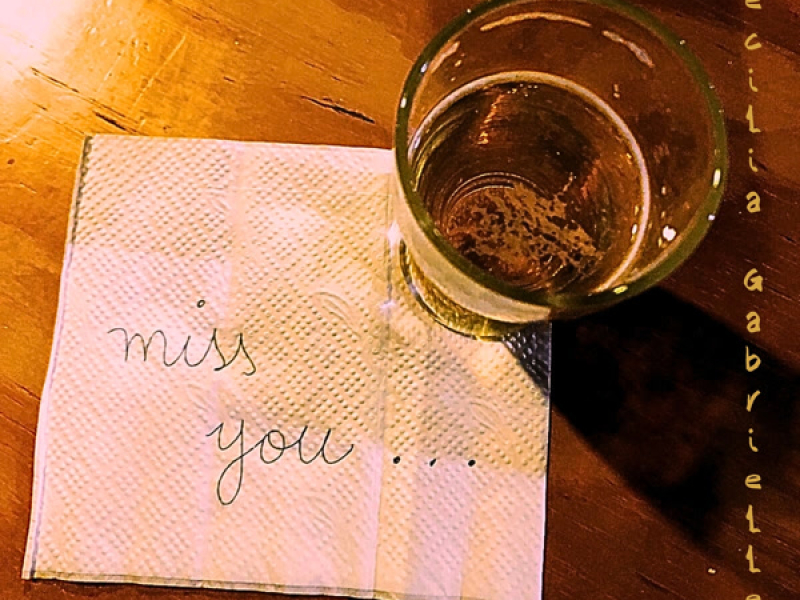 miss
you ...
ecilia Gabrielle